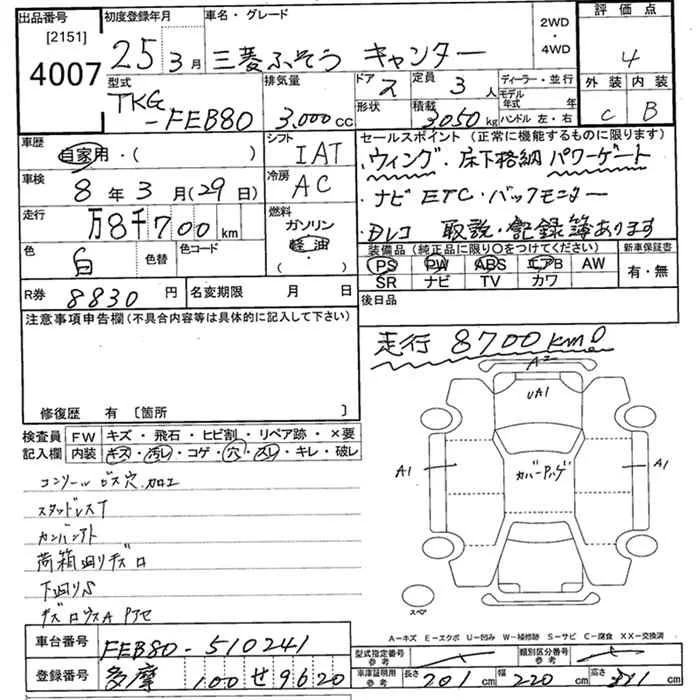 出品番号
[2151]
4007
初度登録年月
25年3月
車名・グレード
三菱ふそう キャンター
2WD
・
4WD
評価点
4
外装 内装
C B
型式
TKG
-FEB80
排気量
3.000cc
ドア 2
形状
定員 3人
積載 3050kg
ディーラー・並行
モデル
年式 年
ハンドル 左・右
車歴
自家用・( )
車検
8年3月(29日)
走行
万8千700km
色
白
色替
色コード
シフト
IAT
冷房
AC
燃料
ガソリン
軽油
・( )
セールスポイント(正常に機能するものに限ります)
・ウィング・床下格納パワーゲート
・ナビ ETC・バックモニター
・Dレコ 取説・記録簿あります
装備品(純正品に限り○をつけてください)
PS PW ABS エアB AW
SR ナビ TV カワ
新車保証書
有・無
R券 8830円
名変期限 月 日
後日品
注意事項申告欄(不具合内容等は具体的に記入して下さい)
修復歴 有 [箇所 ]
走行 8700km
検査員
記入欄
FW キズ・飛石・ヒビ割・リペア跡・×要
内装 キズ・汚レ・コゲ・穴・スレ・キレ・破レ
コンソールビス穴.加工
スタッドレスT
荷箱回りキズロ
下回りS
A2
UA1
A1
A1
スペア
A-キズ E-エクボ U-凹み W-補修跡 S-サビ C-腐食 XX-交換済
車台番号 FEB80-510241
登録番号 多摩 100 せ 9620
型式指定番号
参考
類別区分番号
参考
車庫証明用
参考
長さ 201cm 幅 220cm 高さ 321cm